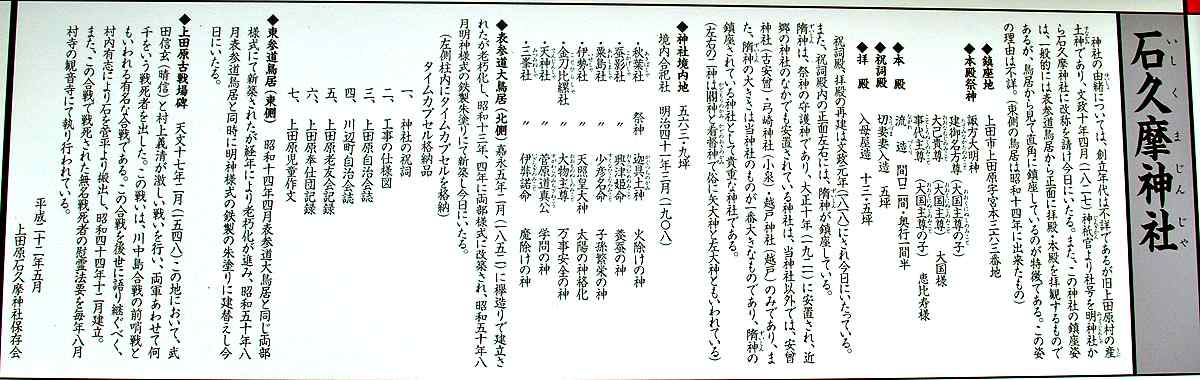 石久摩神社
いしくまじんじゃ
神社の由緒については、創立年代は不詳であるが旧上田原村の産
土神であり、文政十年四月(一八二七)神祇官より社号を明神社か
ら石久摩神社に改称を請け今日にいたる。また、この神社の鎮座姿
は、一般的には表参道鳥居から正面に拝殿・本殿を拝観するもので
あるが、鳥居から見て直角に鎮座しているのが特徴である。この姿
の理由は不詳。(東側の鳥居は昭和十四年に出来たもの)
◆鎮座地 上田市上田原字宮本三六三番地
◆本殿祭神 諏訪大明神
建御名方尊(大国主尊の子)
大己貴尊(大国主尊) 大国様
事代主尊(大国主尊の子) 恵比寿様
◆本殿 流造 間口二間・奥行一間半
◆祝詞殿 切妻妻入造 五坪
◆拝殿 入母屋造 十三・五坪
祝詞殿、拝殿の再建は文政元年(一八一八)にされ今日にいたっている。
また、祝詞殿内の正面左右には、隋神が鎮座している。
隋神は、祭神の守護神であり、大正十年(一九二一)に安置され、近
郷の神社のなかでも安置されている神社は、当神社以外では、安曽
神社(古安曽)・弓崎神社(小泉)・越戸神社(越戸)のみであり、ま
た、隋神の大きさは当神社のものが一番大きなものであり、隋神の
鎮座されている神社として貴重な神社である。
(左右の二神は闇神と看督神で俗に矢大神と左大神ともいわれている)
◆神社境内地 五六三・九坪
境内合祀社 明治四十一年三月(一九〇八)
・秋葉社 祭神 迦具土神 火除けの神
・蚕影社 〃 興津姫命 養蚕の神
・粟島社 〃 少彦名命 子孫繁栄の神
・伊勢社 〃 天照皇大神 太陽の神格化
・金刀比羅社 〃 大物主尊 万事安全の神
・天神社 〃 菅原道真公 学問の神
・三峯社 〃 伊弉諾命 魔除けの神
◆表参道大鳥居(北側) 嘉永五年二月(一八五二)に欅造りで建立さ
れたが老朽化し、昭和十三年四年に両部様式に改築され、昭和五十年八
月明神様式の鉄製朱塗りにて新築し今日にいたる。
(左側柱内にタイムカプセルを格納)
タイムカプセル格納品
一、神社の祝詞
二、工事の仕様図
三、上田原自治会誌
四、川辺町自治会誌
五、上田原老友会記録
六、上田原奉仕団記録
七、上田原児童作文
◆東参道鳥居(東側) 昭和十四年四月表参道大鳥居と同じ両部
様式にて新築されたが経年により老朽化が進み、昭和五十年八
月表参道鳥居と同時に明神様式の鉄製の朱塗りに建替えし今
日にいたる。
◆上田原古戦場碑 天文十七年二月(一五四八)この地において、武
田信玄(晴信)と村上義清が激しい戦いを行い、両軍あわせて何
千という戦死者を出した。この戦いは、川中島合戦の前哨戦と
もいわれる有名な合戦である。この合戦を後世に語り継ぐべく、
村内有志により石を菅平より搬出し、昭和四十四年十二月建立。
また、この合戦で戦死された無名戦死者の慰霊法要を毎年八月
村寺の観音寺にて執り行われている。
平成二十二年五月
上田原石久摩神社保存会